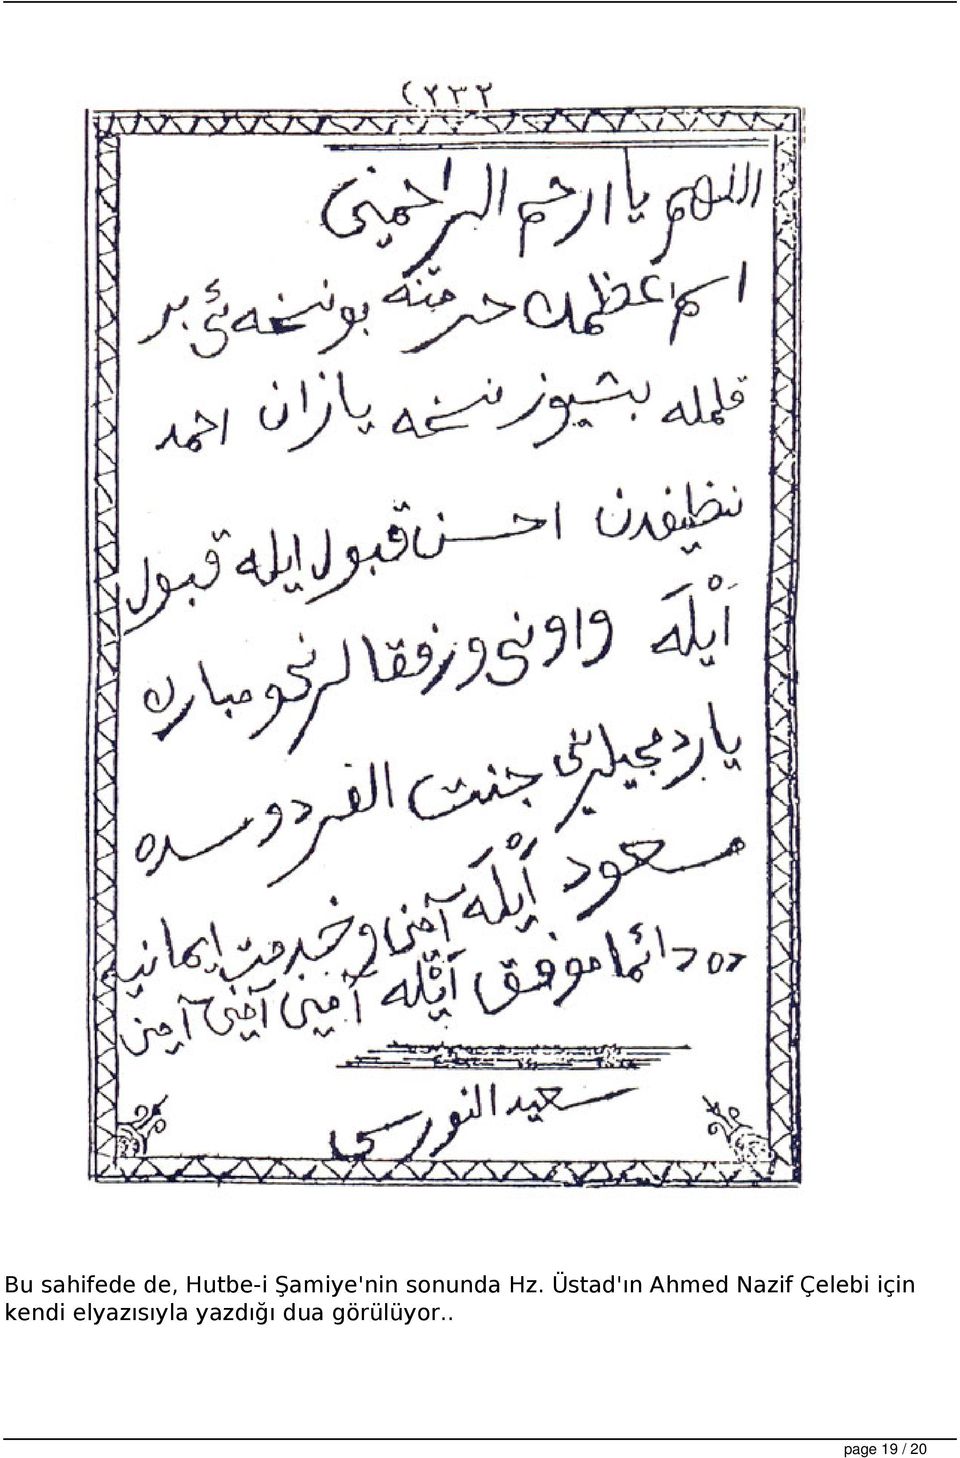 (٢٣٢
اللهم يا ارحم الراحمين
اسم اعظمك حرمتنه بو نسخه ئی بر
قلمله بشیوز نسخه یازان احمد
نظیفدن احسن قبول ایله قبول
اَيْلَه واونی و رفقالرنی و مبارك
یاردمجیلرینی جنت الفردوسده
مسعود اَيْلَه آمین و خدمت ایمانیه
ده دائما موفق اَيْلَه آمین آمین آمین
سعيد النورسی
Bu sahifede de, Hutbe-i Şamiye'nin sonunda Hz. Üstad'ın Ahmed Nazif Çelebi için
kendi elyazısıyla yazdığı dua görülüyor..
page 19 / 20